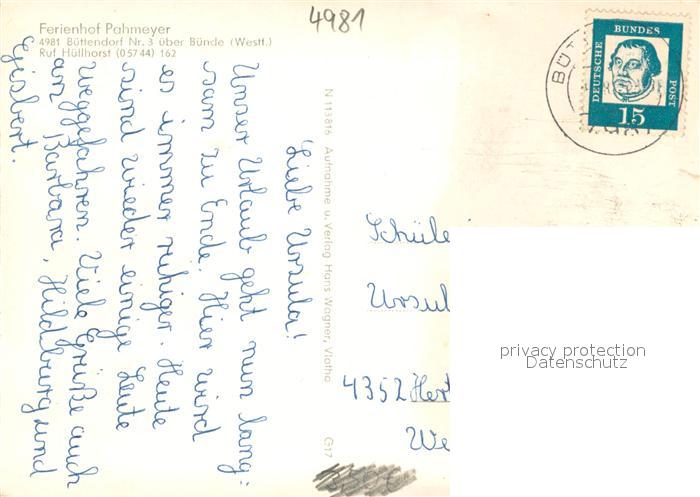 4981
Ferienhof Pahmeyer
4981 Büttendorf Nr. 3 über Bünde (Westf.)
Ruf Hüllhorst (0 57 44) 162
Liebe Ursula!
Unser Urlaub geht nun lang=
sam zu Ende. Hier wird
es immer ruhiger. Heute
sind wieder einige Leute
weggefahren. Viele Grüße auch
an Barbara, Hildburg und
Gisbert.
N 113816 Aufnahme u. Verlag Hans Wagner, Vlotho G17
BÜT
DEUTSCHE BUNDES POST
15
Schüle
Ursul
4352 Hert
We
privacy protection
Datenschutz